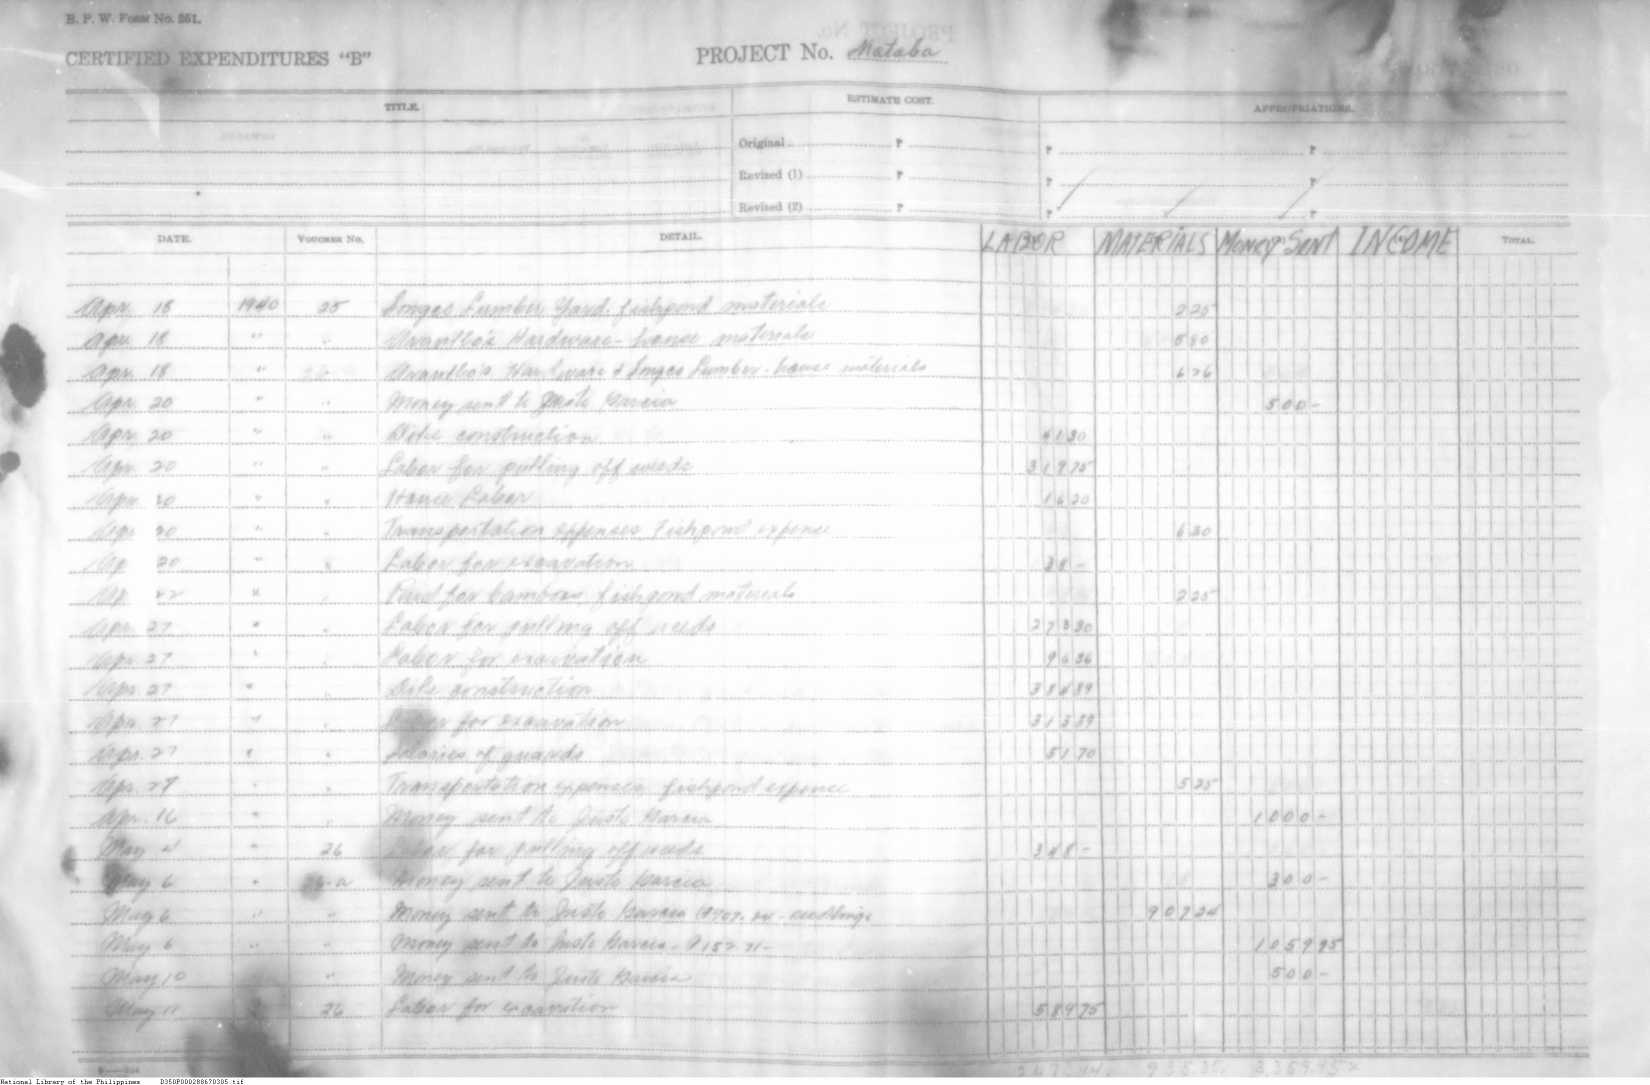 B. P. W. Form No. 251.
CERTIFIED EXPENDITURES "B"
PROJECT No. Mataba
TITLE.
ESTIMATE COST.
APPROPRIATIONS.
Original ₱ ₱ ₱
Revised (1) ₱ ₱ ₱
Revised (2) ₱ ₱ ₱
DATE. VOUCHER No. DETAIL. LABOR MATERIALS Money Sent INCOME TOTAL.
Apr. 18 1940 25 Lumber Yard. fishpond materials 225
Apr. 18 " " Hardware - house materials 580
Apr. 18 " Hardware & Lumber - house materials 626
Apr. 20 " " Money sent to Justo Garcia 500 -
Apr. 20 " " Dike construction 4130
Apr. 20 " " Labor for pulling off weeds 31975
Apr. 20 " " House Labor 1620
Apr. 20 " " Transportation expenses Fishpond expense 630
Ap 20 " " Labor for excavation 38 -
Ap 22 " " Paid for bamboos, fishpond materials 225
Apr. 27 " " Labor for pulling off weeds 27330
Apr. 27 " " Labor for excavation 9636
Apr. 27 " " Dike construction 38489
Apr. 27 " " Labor for excavation 31339
Apr. 27 " " Salaries of guards 5170
Apr. 29 " " Transportation expenses fishpond expense 525
Apr. 16 " " Money sent to Justo Garcia 1000 -
May " 26 Labor for pulling off weeds 348 -
May 6 " 26-a Money sent to Justo Garcia 300 -
May 6 " " Money sent to Justo Garcia - seedlings 90724
May 6 " " Money sent to Justo Garcia - 105995
May 10 " Money sent to Justo Garcia 500 -
May 11 26 Labor for excavation 58475
3,359.95
National Library of the Philippines D350P000288670305.tif